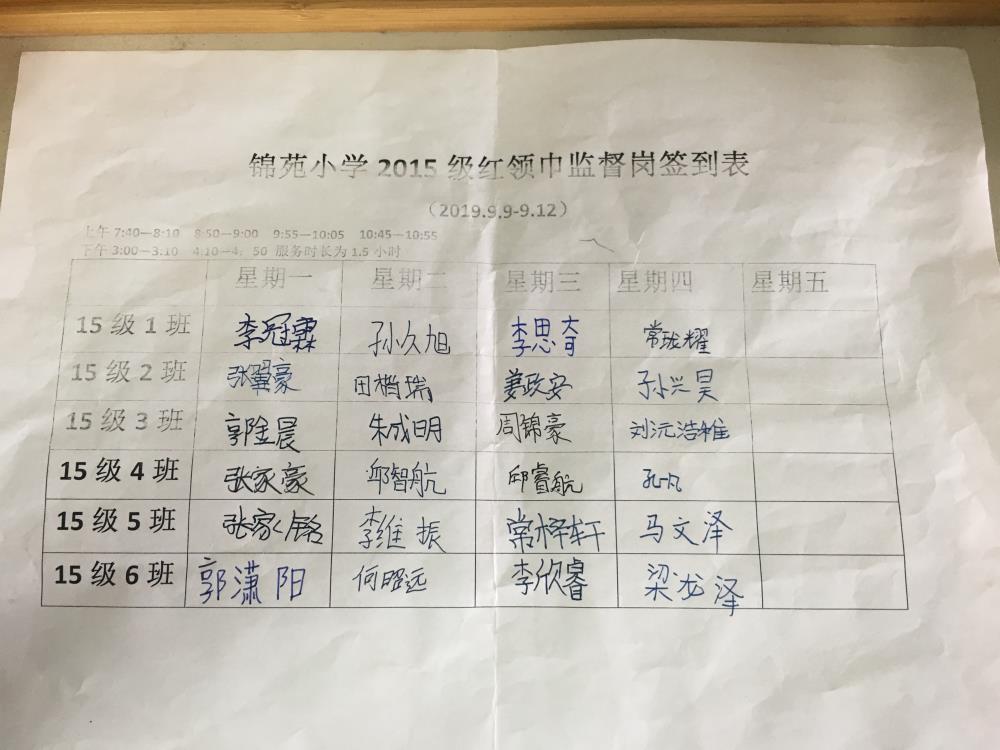 锦苑小学2015级红领巾监督岗签到表
（2019.9.9-9.12）
上午7:40—8:10 8:50—9:00 9:55—10:05 10:45—10:55
下午3:00—3:10 4:10—4：50 服务时长为1.5小时
星期一 星期二 星期三 星期四 星期五
15级1班 李冠霖 孙久旭 李思奇 常珑耀
15级2班 张翼豪 田楷瑞 姜政安 孙兴昊
15级3班 郭金晨 朱成明 周锦豪 刘沅浩雅
15级4班 张家豪 邱智航 邱睿航 孔一凡
15级5班 张家铭 李维振 常梓轩 马文泽
15级6班 郭潇阳 何昭远 李欣睿 梁龙泽